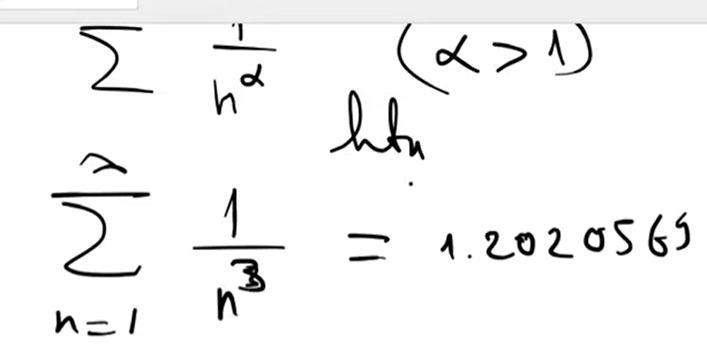 ∑ 1/n^α (α > 1)
htụ
∑_{n=1}^{∞} 1/n^3 = 1.2020569